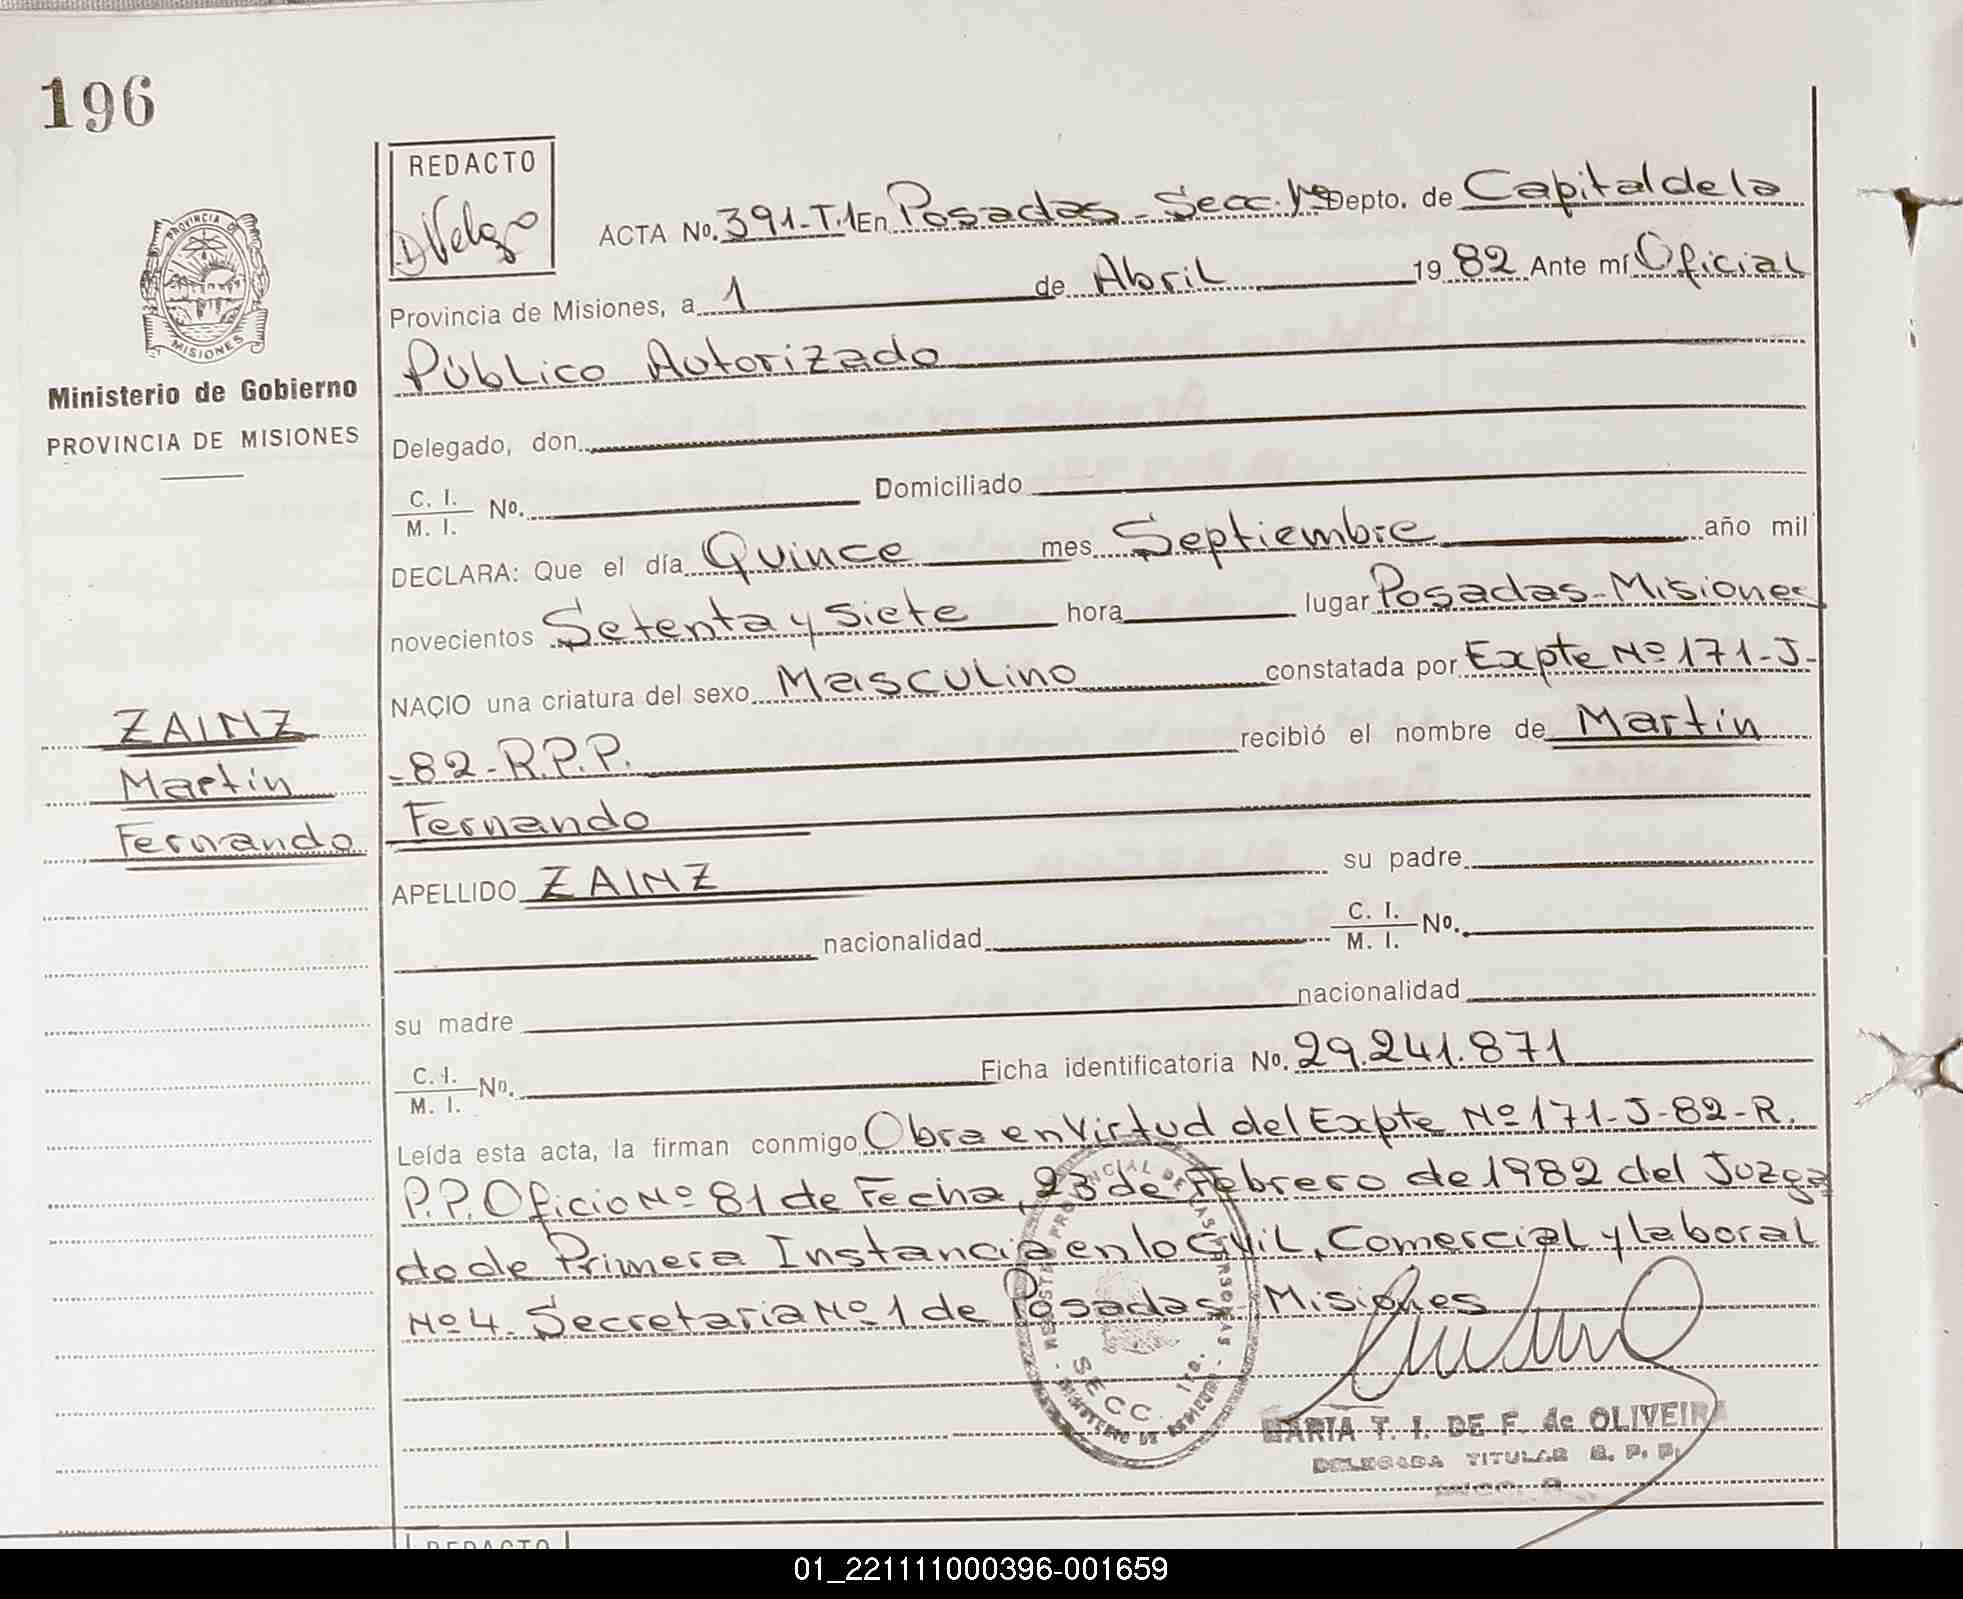 196
REDACTO
ACTA No. 391-T.1 En Posadas - Secc. 1ª Depto. de Capital de la
Provincia de Misiones, a 1 de Abril 1982 Ante mí Oficial
Público Autorizado
PROVINCIA DE
MISIONES
Ministerio de Gobierno
PROVINCIA DE MISIONES
Delegado, don
C. I.
M. I. No. Domiciliado
DECLARA: Que el día Quince mes Septiembre año mil
novecientos Setenta y Siete hora lugar Posadas-Misiones
NACIO una criatura del sexo Masculino constatada por Expte Nº 171-J-
-82-R.P.P. recibió el nombre de Martín
Fernando
ZAINZ
Martín
Fernando
APELLIDO ZAINZ su padre
nacionalidad C. I.
M. I. No.
su madre nacionalidad
C. I.
M. I. No. Ficha identificatoria No. 29.241.871
Leída esta acta, la firman conmigo Obra en Virtud del Expte Nº 171-J-82-R.
P.P. Oficio Nº 81 de Fecha, 23 de Febrero de 1982 del Juzga
do de Primera Instancia en lo Civil, Comercial y Laboral
Nº 4. Secretaria Nº 1 de Posadas Misiones
SECC. 1ra.
MARIA T. I. DE F. de OLIVEIRA
DELEGADA TITULAR R. P. P.
REDACTO
01_221111000396-001659